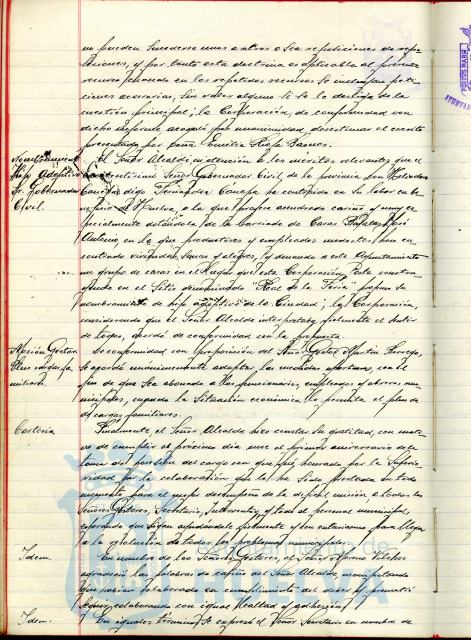 no pueden sucederse unas a otras o sea reposiciones de repo-
siciones, y por tanto esta doctrina es aplicable al presente
recurso, cuando en los repetidos recursos se incluyan peti-
ciones accesorias, sin valor alguno si se las desliga de la
cuestión principal; la Corporación, de conformidad con
dicho informe, acordó por unanimidad, desestimar el escrito
presentado por Doña Emilia
Nombramiento
Hijo Adoptivo
Sr. Gobernador
Civil.
El Señor Alcalde, en atención a los méritos relevantes que el
Señor Gobernador Civil de la provincia Don
digo Fernández Canepa ha contraído en su labor en be-
neficio de Huelva, a la que profesa acendrado cariño y muy es-
pecialmente dotándola de la barriada de Casas
Antonio, en la que productores y empleados modestos han en-
contrado viviendas sanas y alegres, y donando a este Ayuntamiento
un grupo de casas en el lugar que esta Corporación
en el sitio denominado "Real de la Feria", propuso su
nombramiento de hijo adoptivo de la Ciudad; la Corporación,
considerando que el Señor Alcalde interpretaba fielmente el sentir
de todos, acordó de conformidad con la propuesta.
Moción Gestor
Plus cargas fa-
miliares.
De conformidad con proposición del Señor Gestor Martín
se acordó unánimemente adoptar las medidas oportunas, con el
fin de que sea abonado a los funcionarios, empleados y obreros mu-
nicipales, cuando la situación económica lo permita el plus de
cargas familiares.
Cortesía
Finalmente el Señor Alcalde hizo constar su gratitud, con moti-
vo de cumplir el próximo día once el primer aniversario de la
toma de posesión del cargo con que fué honrado por la Superio-
ridad por la colaboración que le ha sido prestada en todo
momento para el mejor desempeño de la difícil misión a todos los
Señores Gestores, Secretario, Interventor y todo el personal municipal,
esperando que sigan ayudándole fielmente y con entusiasmo para llegar
a la solución de todos los problemas municipales.
Idem.
En nombre de los Señores Gestores, el Señor Moreno
agradeció las palabras de cariño del Señor Alcalde, manifestando
que habían colaborado en cumplimiento del deber y prometió
seguir colaborando con igual lealtad y adhesión.
Idem.
En iguales términos se expresó el Señor Secretario en nombre de
ayuntamiento de
HUELVA